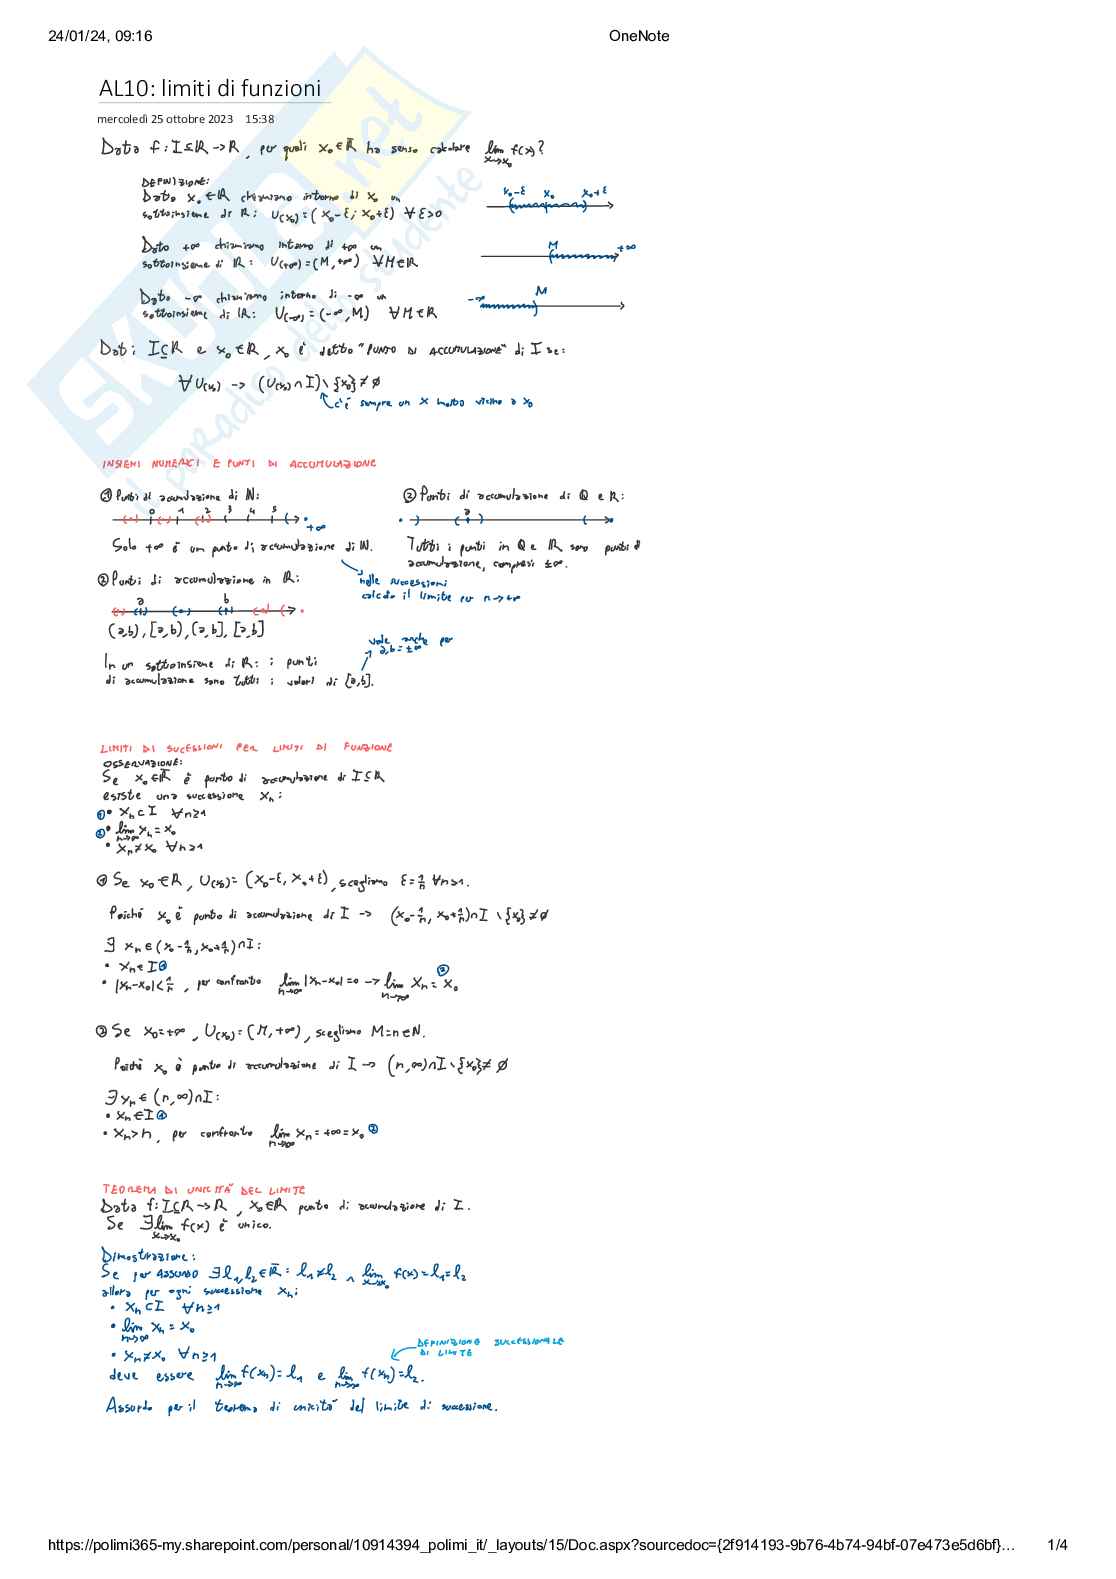 24/01/24, 09:16
OneNote
AL10: limiti di funzioni
mercoledì 25 ottobre 2023 15:38
Data f: I⊆ℝ→ℝ, per quali x₀∈ℝ̄ ha senso calcolare lim x→x₀ f(x)?
DEFINIZIONE:
Dato x₀∈ℝ chiamiamo intorno di x₀ un
sottoinsieme di ℝ: U(x₀)=(x₀-ε; x₀+ε) ∀ε>0
x₀-ε x₀ x₀+ε
Dato +∞ chiamiamo intorno di +∞ un
sottoinsieme di ℝ: U(+∞)=(M,+∞) ∀M∈ℝ
M +∞
Dato -∞ chiamiamo intorno di -∞ un
sottoinsieme di ℝ: U(-∞)=(-∞,M) ∀M∈ℝ
-∞ M
Dati I⊆ℝ e x₀∈ℝ̄, x₀ è detto "PUNTO DI ACCUMULAZIONE" di I se:
∀U(x₀) → (U(x₀)∩I)\{x₀}≠∅
c'è sempre un x molto vicino a x₀
INSIEMI NUMERICI E PUNTI DI ACCUMULAZIONE
① Punti di accumulazione di ℕ:
0 1 2 3 4 5 +∞
Solo +∞ è un punto di accumulazione di ℕ.
nelle successioni
calcolo il limite per n→+∞
② Punti di accumulazione di ℚ e ℝ:
a
Tutti i punti in ℚ e ℝ sono punti di
accumulazione, compresi ±∞.
② Punti di accumulazione in ℝ:
a b
(a,b), [a,b), (a,b], [a,b]
vale anche per
a,b=±∞
In un sottoinsieme di ℝ: i punti
di accumulazione sono tutti i valori di [a,b].
LIMITI DI SUCESSIONI PER LIMITI DI FUNZIONE
OSSERVAZIONE:
Se x₀∈ℝ̄ è punto di accumulazione di I⊆ℝ
esiste una successione xₙ:
① • xₙ⊂I ∀n≥1
② • lim n→∞ xₙ=x₀
• xₙ≠x₀ ∀n≥1
① Se x₀∈ℝ, U(x₀)=(x₀-ε, x₀+ε), scegliamo ε=1/n ∀n≥1.
Poiché x₀ è punto di accumulazione di I → (x₀-1/n, x₀+1/n)∩I \{x₀}≠∅
∃ xₙ∈(x₀-1/n, x₀+1/n)∩I:
• xₙ∈I ①
• |xₙ-x₀|<1/n, per confronto lim n→∞ |xₙ-x₀|=0 → lim n→∞ xₙ=x₀ ②
② Se x₀=+∞, U(x₀)=(M,+∞), scegliamo M=n∈ℕ.
Poiché x₀ è punto di accumulazione di I → (n,∞)∩I\{x₀}≠∅
∃xₙ∈(n,∞)∩I:
• xₙ∈I ①
• xₙ>n, per confronto lim n→∞ xₙ=+∞=x₀ ②
TEOREMA DI UNICITÀ DEL LIMITE
Data f: I⊆ℝ→ℝ, x₀∈ℝ̄ punto di accumulazione di I.
Se ∃lim x→x₀ f(x) è unico.
Dimostrazione:
Se per ASSURDO ∃l₁,l₂∈ℝ̄: l₁≠l₂ ∧ lim x→x₀ f(x)=l₁=l₂
allora per ogni successione xₙ:
• xₙ⊂I ∀n≥1
• lim n→∞ xₙ=x₀
• xₙ≠x₀ ∀n≥1
DEFINIZIONE SUCCESSIONALE
DI LIMITE
deve essere lim n→∞ f(xₙ)=l₁ e lim n→∞ f(xₙ)=l₂.
Assurdo per il teorema di unicità del limite di successione.
https://polimi365-my.sharepoint.com/personal/10914394_polimi_it/_layouts/15/Doc.aspx?sourcedoc={2f914193-9b76-4b74-94bf-07e473e5d6bf}...
1/4
SKUOLA.net
il paradiso dello studente